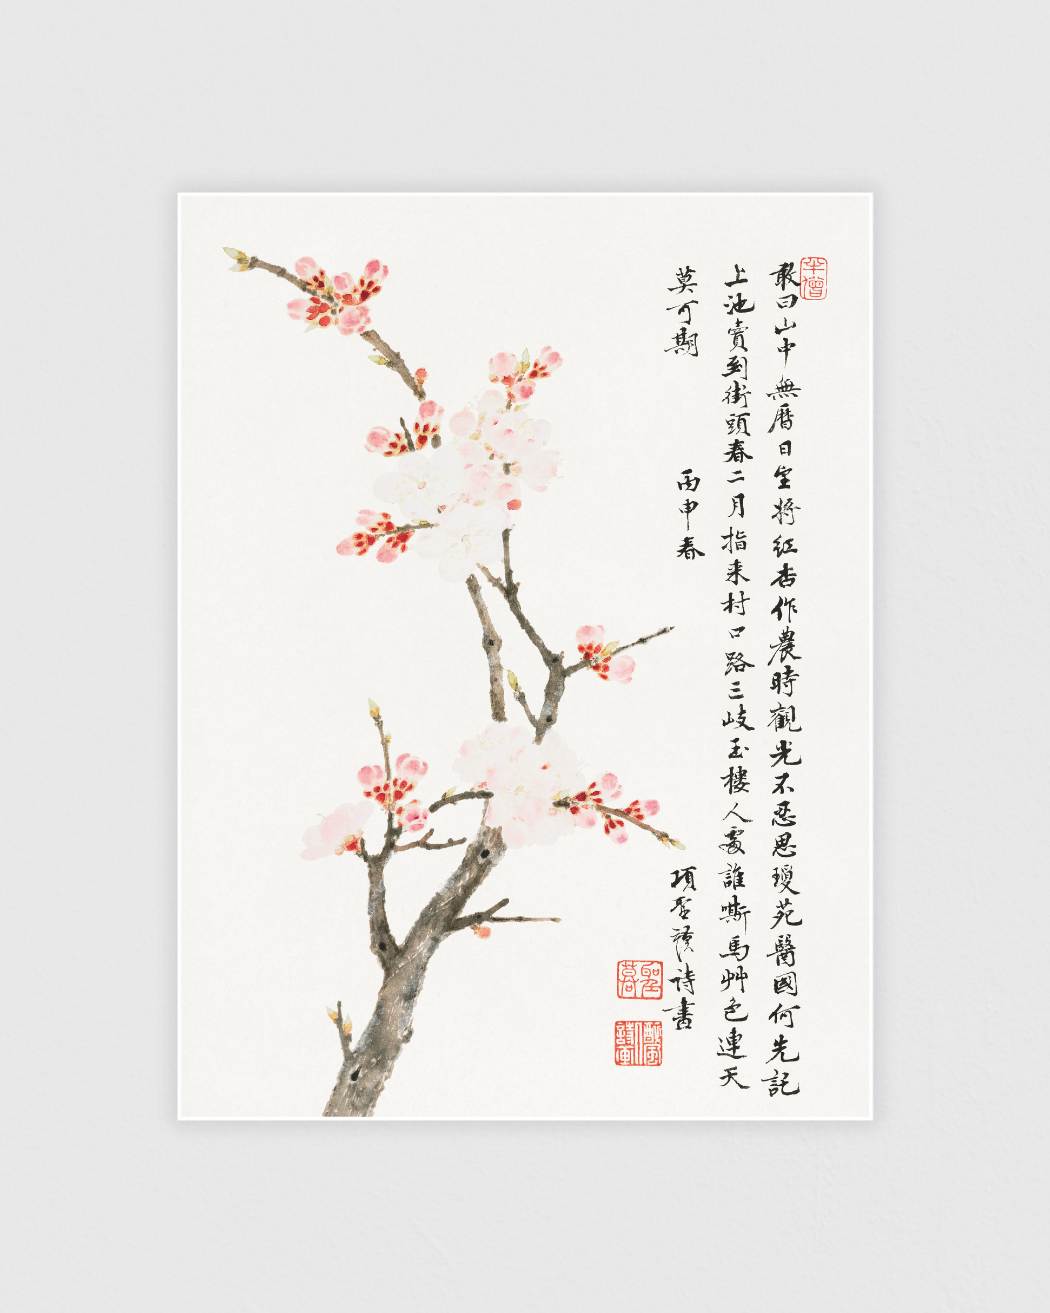 敢曰山中無曆日坐將紅杏作農時觀光不忍思瓊苑醫國何先記
上池賣到街頭春二月指来村口路三岐玉樓人處誰嘶馬艸色連天
莫可期
丙申春
項聖謨詩書